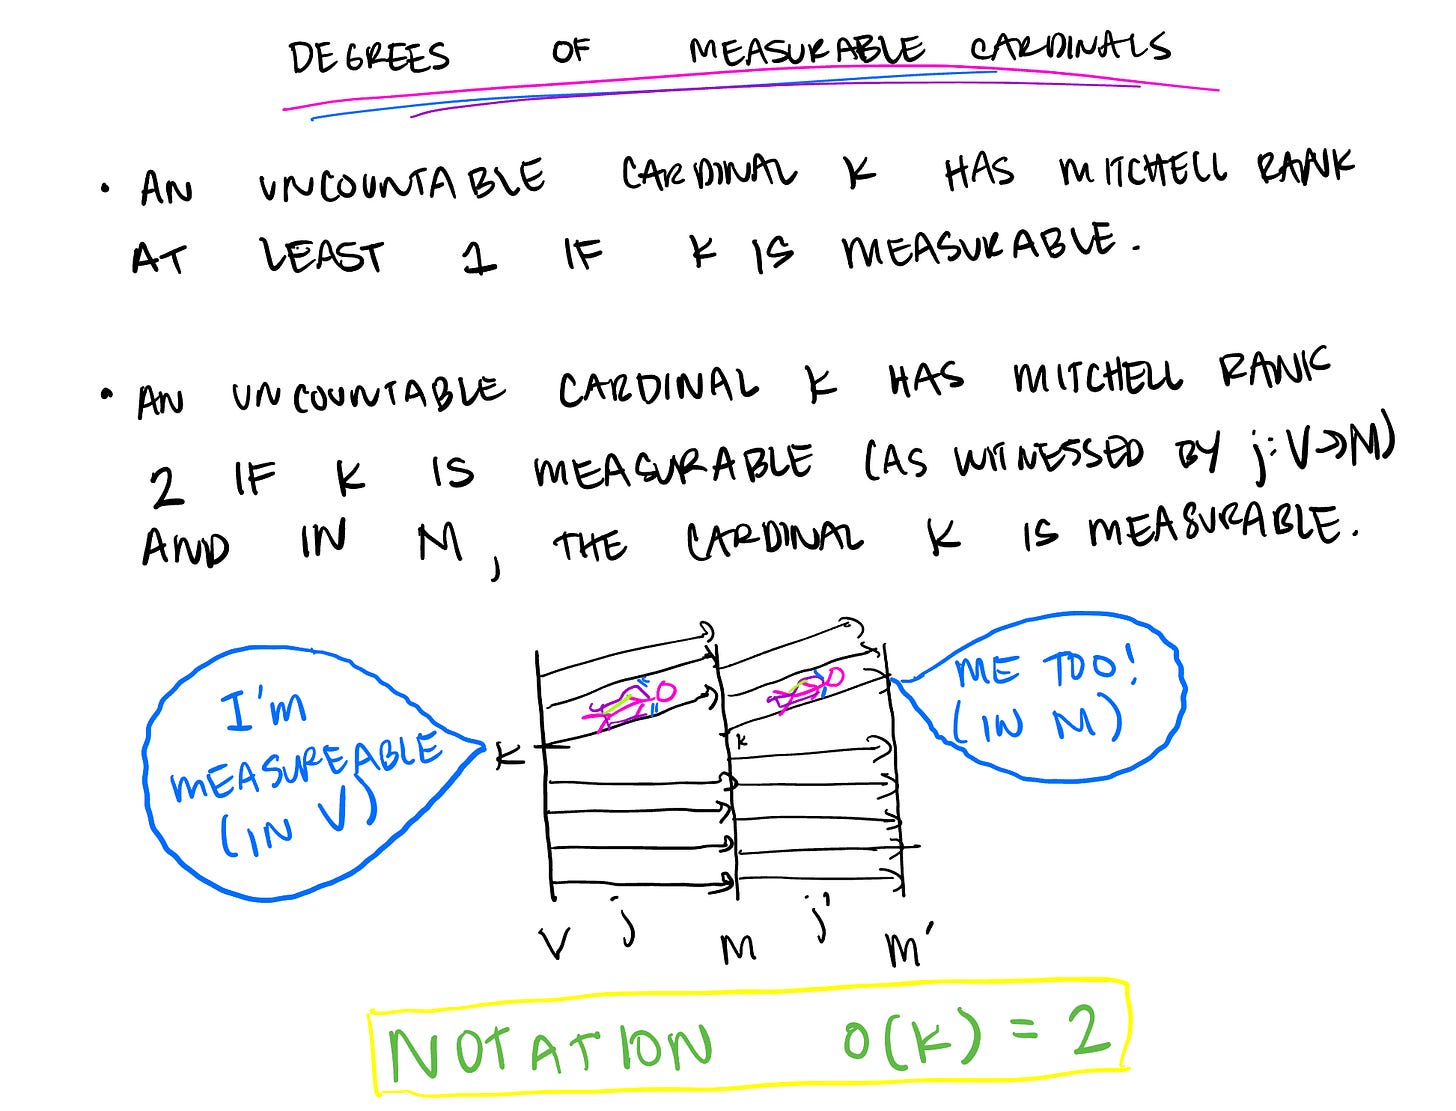 DEGREES OF MEASURABLE CARDINALS
• AN UNCOUNTABLE CARDINAL K HAS MITCHELL RANK
AT LEAST 1 IF K IS MEASURABLE.
• AN UNCOUNTABLE CARDINAL K HAS MITCHELL RANK
2 IF K IS MEASURABLE (AS WITNESSED BY j:V→M)
AND IN M, THE CARDINAL K IS MEASURABLE.
I'm
MEASUREABLE
(IN V)
K
K
ME TOO!
(IN M)
V j M j' M'
NOTATION O(K) = 2